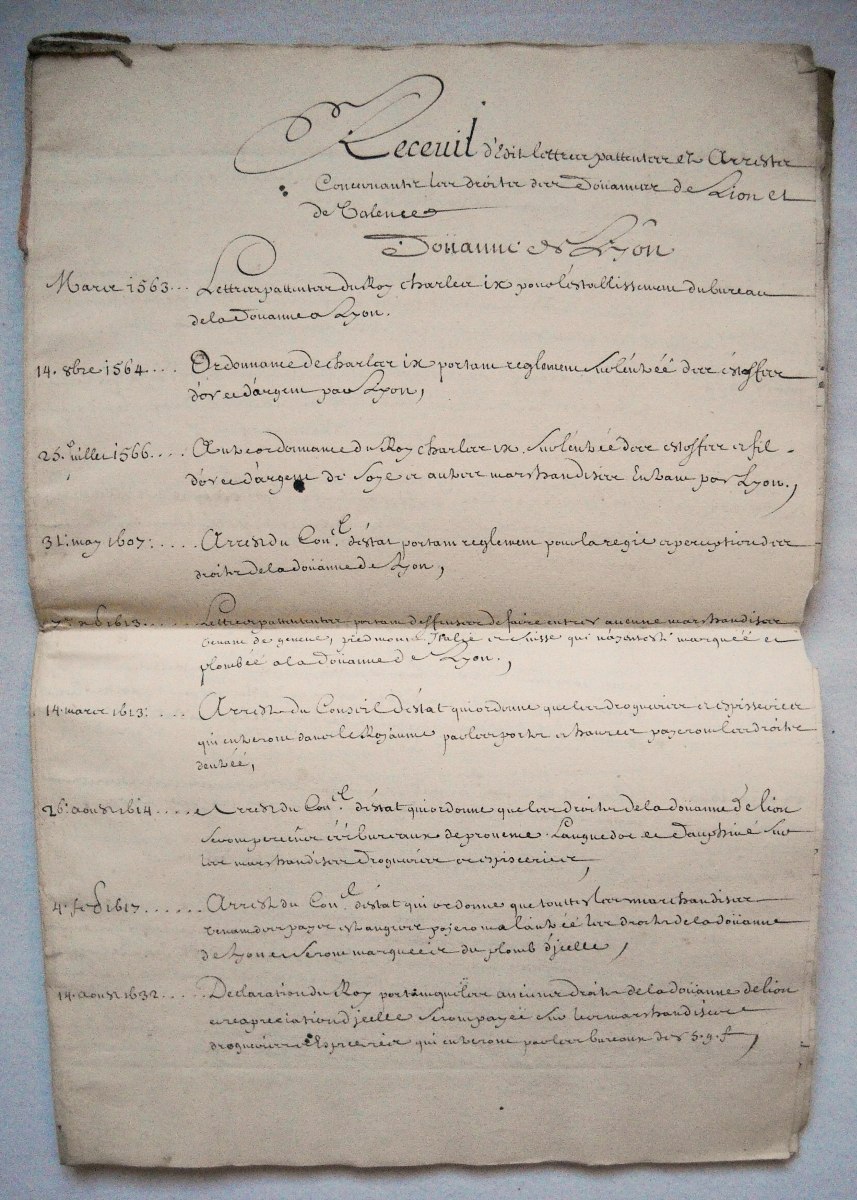 Receuil d'Edit lettres pattentes et Arrestz
Concernants les droits des Doüannes de Lion et
de Valence
Doüanne de Lÿon
Mars 1563... Lettres pattentes du Roy charles ix pour l'establissement du bureau
de la Doüanne a Lyon.
14. 8bre 1564... Ordonnance de charles ix portant reglement sur l'entrée des estoffes
d'or et d'argent par Lyon,
25.e juillet 1566.... Autre ordonnance du Roy charles ix. sur l'entrée des estoffes et fil -
d'or et d'argent de Soye et autres marchandises Entrant par Lyon.,
31. may 1607:.... Arrest du Con.el d'éstat portant reglement pour la regie et perception des
droits de la doüanne de Lyon,
1613.... Lettres pattentes portant deffenses de faire entrer aucune marchandises
venant de geneve, piedmont, Italie et suisse qui n'ayent esté marquéé et
plombéé a la Doüanne de Lyon.,
14. mars 1613:... Arrest du Conseil d'estat qui ordonne que les drogueries et espisseries
qui entreront dans le Royaume par les portes et havres payeront les droits
d'entréé,
26. aoust 1614.... Arrest du Con.el d'éstat qui ordonne que les droits de la doüanne de lion
seront perceus és bureaux de provence Languedoc et Dauphiné sur
les marchandises drogueries et espiceries,
4. feb 1617...... Arrest du Con.el d'éstat qui ordonne que touttes les marchandises
venant des payes estrangers payeront a l'entréé les droits de la doüanne
de Lyon et seront marquees du plomb d'jcelle,
14. aoust 1632.... Declaration du Roy portant que les anciens droits de la doüanne de lion
et reapreciation d'jcelle seront payéé sur les marchandises
drogueries et Espiceries qui entreront par les bureaux des 5. g. f,